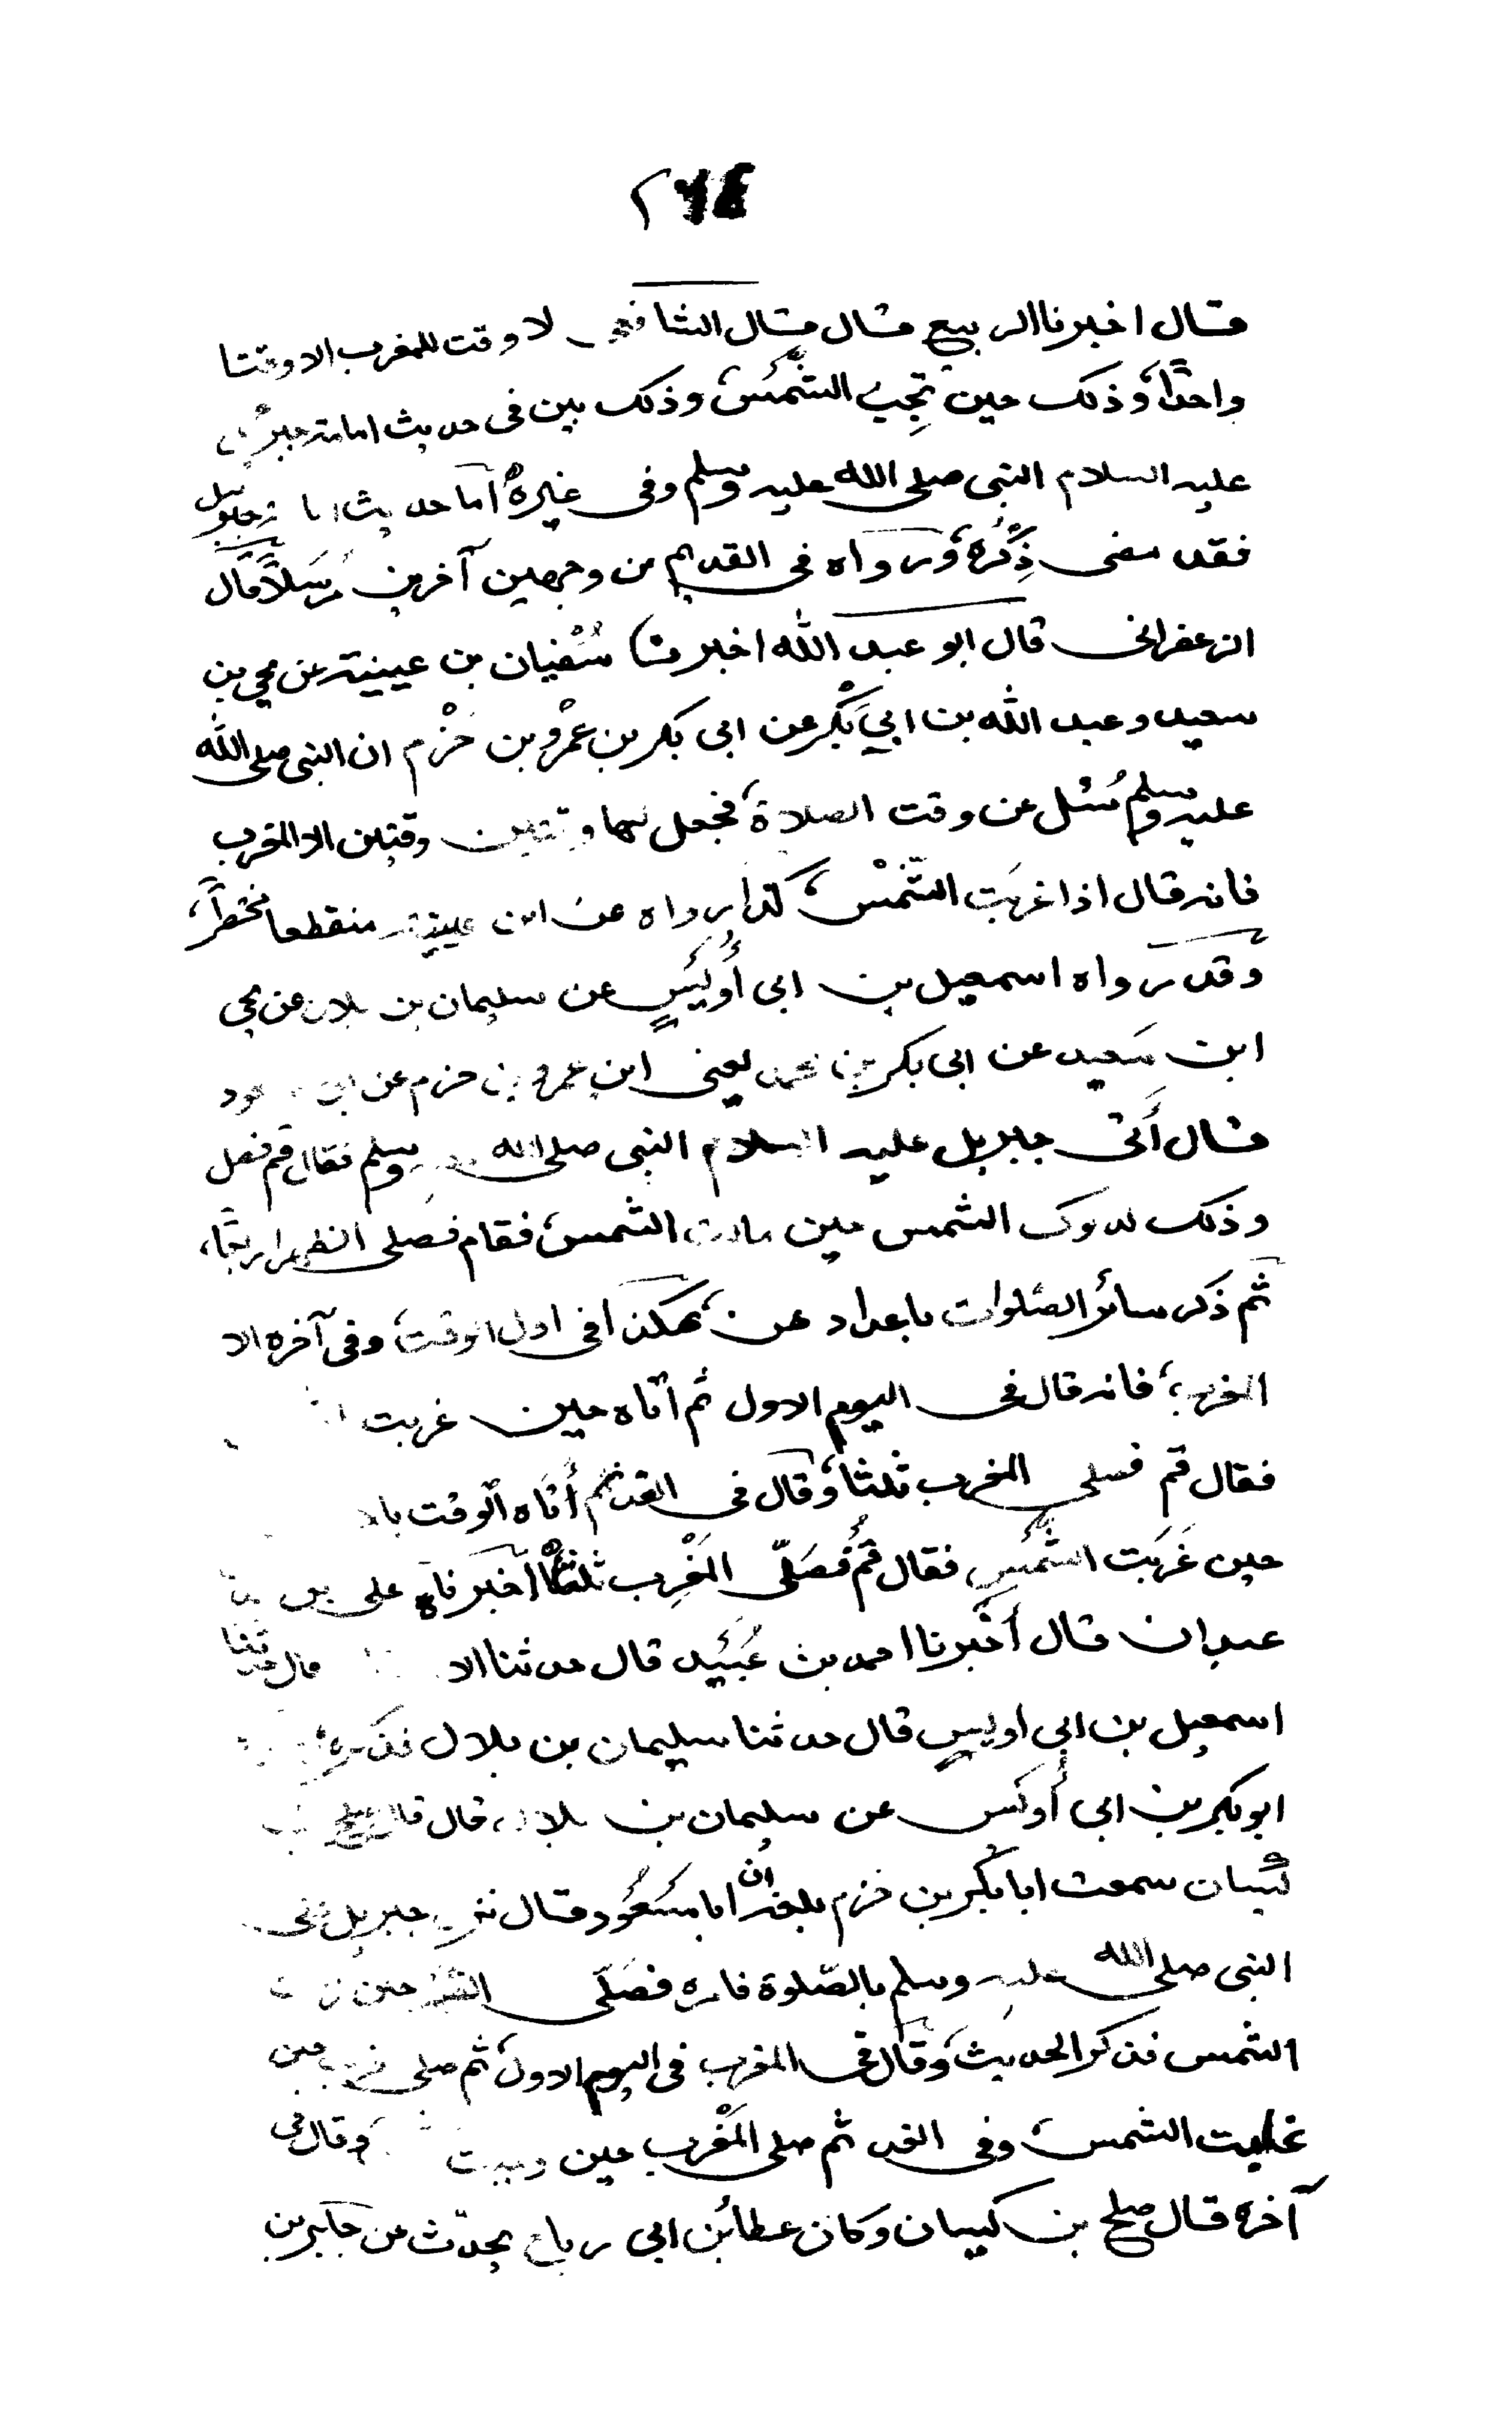 قال اخبرنا الربيع قال قال الشافعى لا وقت للمغرب الا وقتا
واحدًا وذلك حين تَجِبُ الشَّمْسُ وذلك بين فى حديث امامة جبريل
عليه السلام النبى صلى الله عليه وسلم وفى غيره أما حديث جبريل
فقد مضى ذِكْرُه ورواه فى القديم من وجهين آخرين مُرسَلاً قال
الزعفرانى قال ابو عبد الله اخبرنا سُفْيان بن عيينة عن يحيى بن
سعيد وعبد الله بن ابى بَكْر عن ابى بكر بن عَمْرو بن حَزْم ان النبى صلى الله
عليه وسلم سُئل عن وقت الصلاة فجعل لها وقتين وقتين الا المغرب
فانه قال اذا غربَت الشَّمْس كذا رواه عن ابن عيينة منقطعا مختصرًا
وقد رواه اسمعيل بن ابى أُوَيْسٍ عن سليمان بن بلال عن يحيى
ابن سَعيد عن ابى بكر بن محمد يعنى ابن عمرو بن حزم عن ابى
قال أَتى جبريل عليه السلام النبى صلى الله وسلم فقال قم فصل
وذلك لدلوك الشمس حين مالت الشمس فقام فصلى الظهر اربعًا
ثم ذكر سائر الصّلوات باعدادهن هكذا فى اول الوقت وفى آخره الا
المغرب فانه قال فى اليوم الاول ثم أتاه حين غربت
فقال قم فصلى المغرب ثلثا وقال فى الغد ثم أَتَاه الوقت
حين غَرَبَت الشَّمْس فقال قُمْ فُصَلّى المَغْرِب ثلثًا أخبرناه على بن
عبدان قال أَخْبرنا احمد بن عُبَيْد قال حدثنا قال حدثنا
اسمعيل بن ابى اويسٍ قال حدثنا سليمان بن بلال فذكره
ابو بكر بن ابى أُوَيْس عن سليمان بن بلال قال قال
كَيْسان سمعت ابا بَكْر بن حَزم بلغه أن ابا مَسْعُود قال جبريل على
النبى صلى الله عليه وسلم بالصّلوة فامره فصَلَّى الظهر حين
الشمس فذكر الحديث وقال فى المغرب فى اليوم الاول ثم صلى حين
غابت الشمس وفى الغد ثم صلى المَغْرب حين وقال فى
آخره قال صلح بن كيسان وكان عطاءُ بن ابى رباح يحدّث عن جابر بن